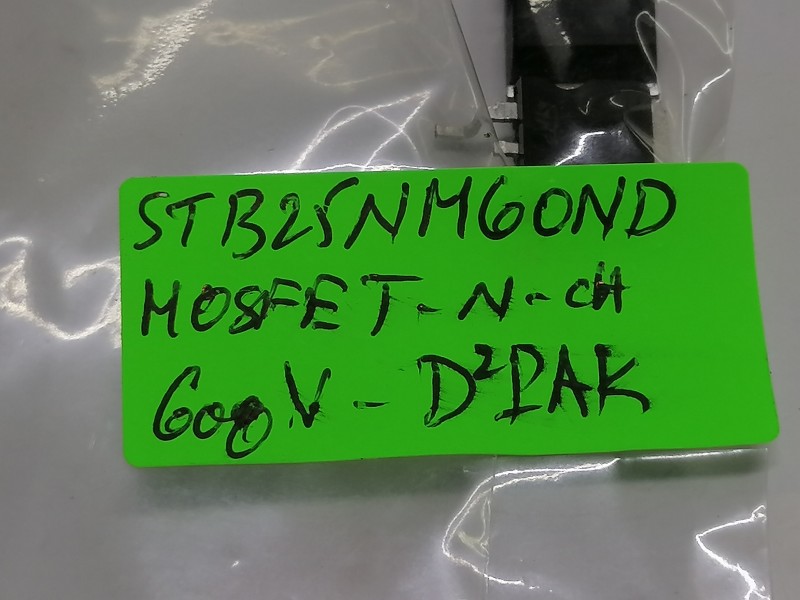 STB25NM60ND
MOSFET-N-CH
600V-D²PAK